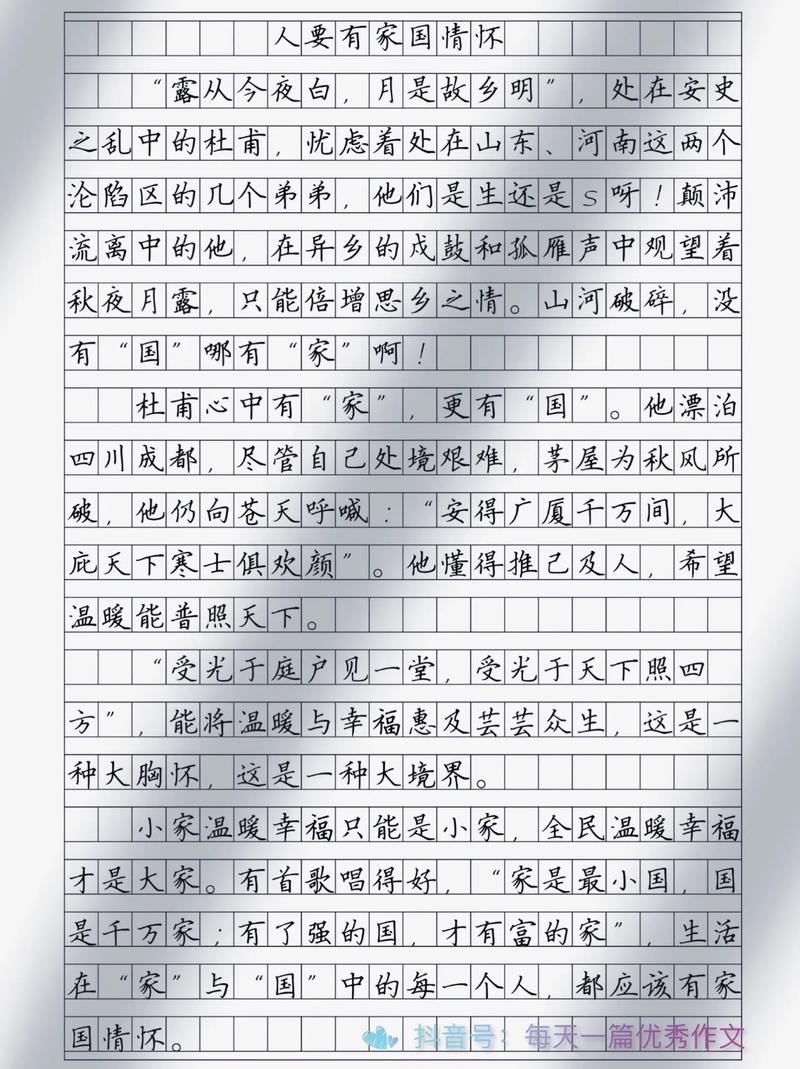 人要有家国情怀
“露从今夜白，月是故乡明”，处在安史
之乱中的杜甫，忧虑着处在山东、河南这两个
沦陷区的几个弟弟，他们是生还是s呀！颠沛
流离中的他，在异乡的戍鼓和孤雁声中观望着
秋夜月露，只能倍增思乡之情。山河破碎，没
有“国”哪有“家”啊！
杜甫心中有“家”，更有“国”。他漂泊
四川成都，尽管自己处境艰难，茅屋为秋风所
破，他仍向苍天呼喊：“安得广厦千万间，大
庇天下寒士俱欢颜”。他懂得推己及人，希望
温暖能普照天下。
“受光于庭户见一堂，受光于天下照四
方”，能将温暖与幸福惠及芸芸众生，这是一
种大胸怀，这是一种大境界。
小家温暖幸福只能是小家，全民温暖幸福
才是大家。有首歌唱得好，“家是最小国，国
是千万家；有了强的国，才有富的家”，生活
在“家”与“国”中的每一个人，都应该有家
国情怀。
抖音号：每天一篇优秀作文